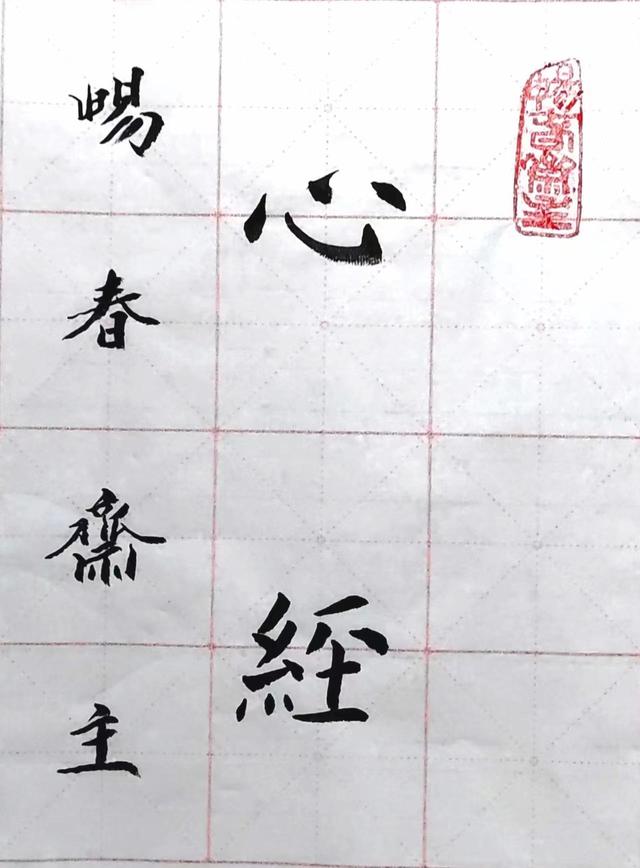 心經
暢春齋主